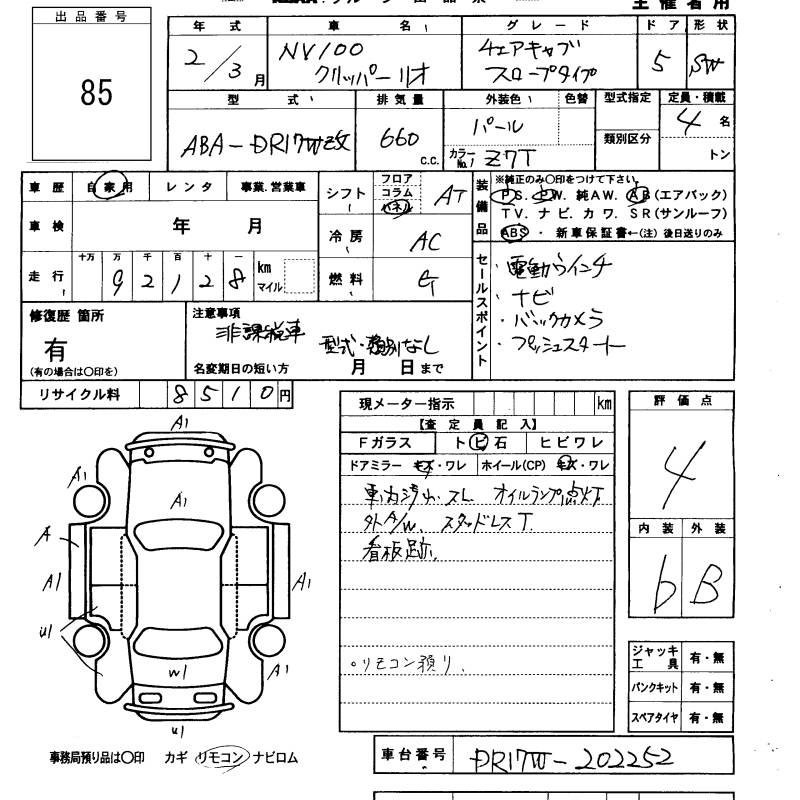 主催者用
出品番号
85
年式 車名 グレード ドア 形状
2/3月 NV100クリッパーリオ 4エアキャブ スロープタイプ 5 SW
型式 排気量 外装色 色替 型式指定 定員・積載
ABA-DR17W改 660 c.c. パール 4名
カラーNo. Z7T 類別区分 トン
車歴 自家用 レンタ 事業.営業車
車検 年 月
走行 十万 万 千 百 十 一 km マイル
9 2 1 2 8
シフト フロア コラム パネル AT
冷房 AC
燃料
装備品
※純正のみ○印をつけて下さい。
P S. P W. 純AW. A B (エアバック)
TV. ナビ. カワ. SR(サンルーフ)
ABS ・ 新車保証書←(注) 後日送りのみ
セールスポイント
・電動ウインチ
・ナビ
・バックカメラ
・プッシュスタート
修復歴 箇所
有
(有の場合は○印を)
注意事項
非課税車 型式・類別なし
名変期日の短い方 月 日まで
リサイクル料 8 5 1 0 円
現メーター指示 km
【査定員記入】
Fガラス トビ石 ヒビワレ
ドアミラー キズ・ワレ ホイール(CP) キズ・ワレ
車内汚れ. スレ. オイルランプ点灯
外A/W. スタッドレスT
看板跡.
○リモコン預り.
評価点
4
内装 外装
b B
ジャッキ工具 有・無
パンクキット 有・無
スペアタイヤ 有・無
A1
A1
A1
A
A1
A1
u1
A1
w1
u1
事務局預り品は○印 カギ リモコン ナビロム
車台番号 DR17W-202252